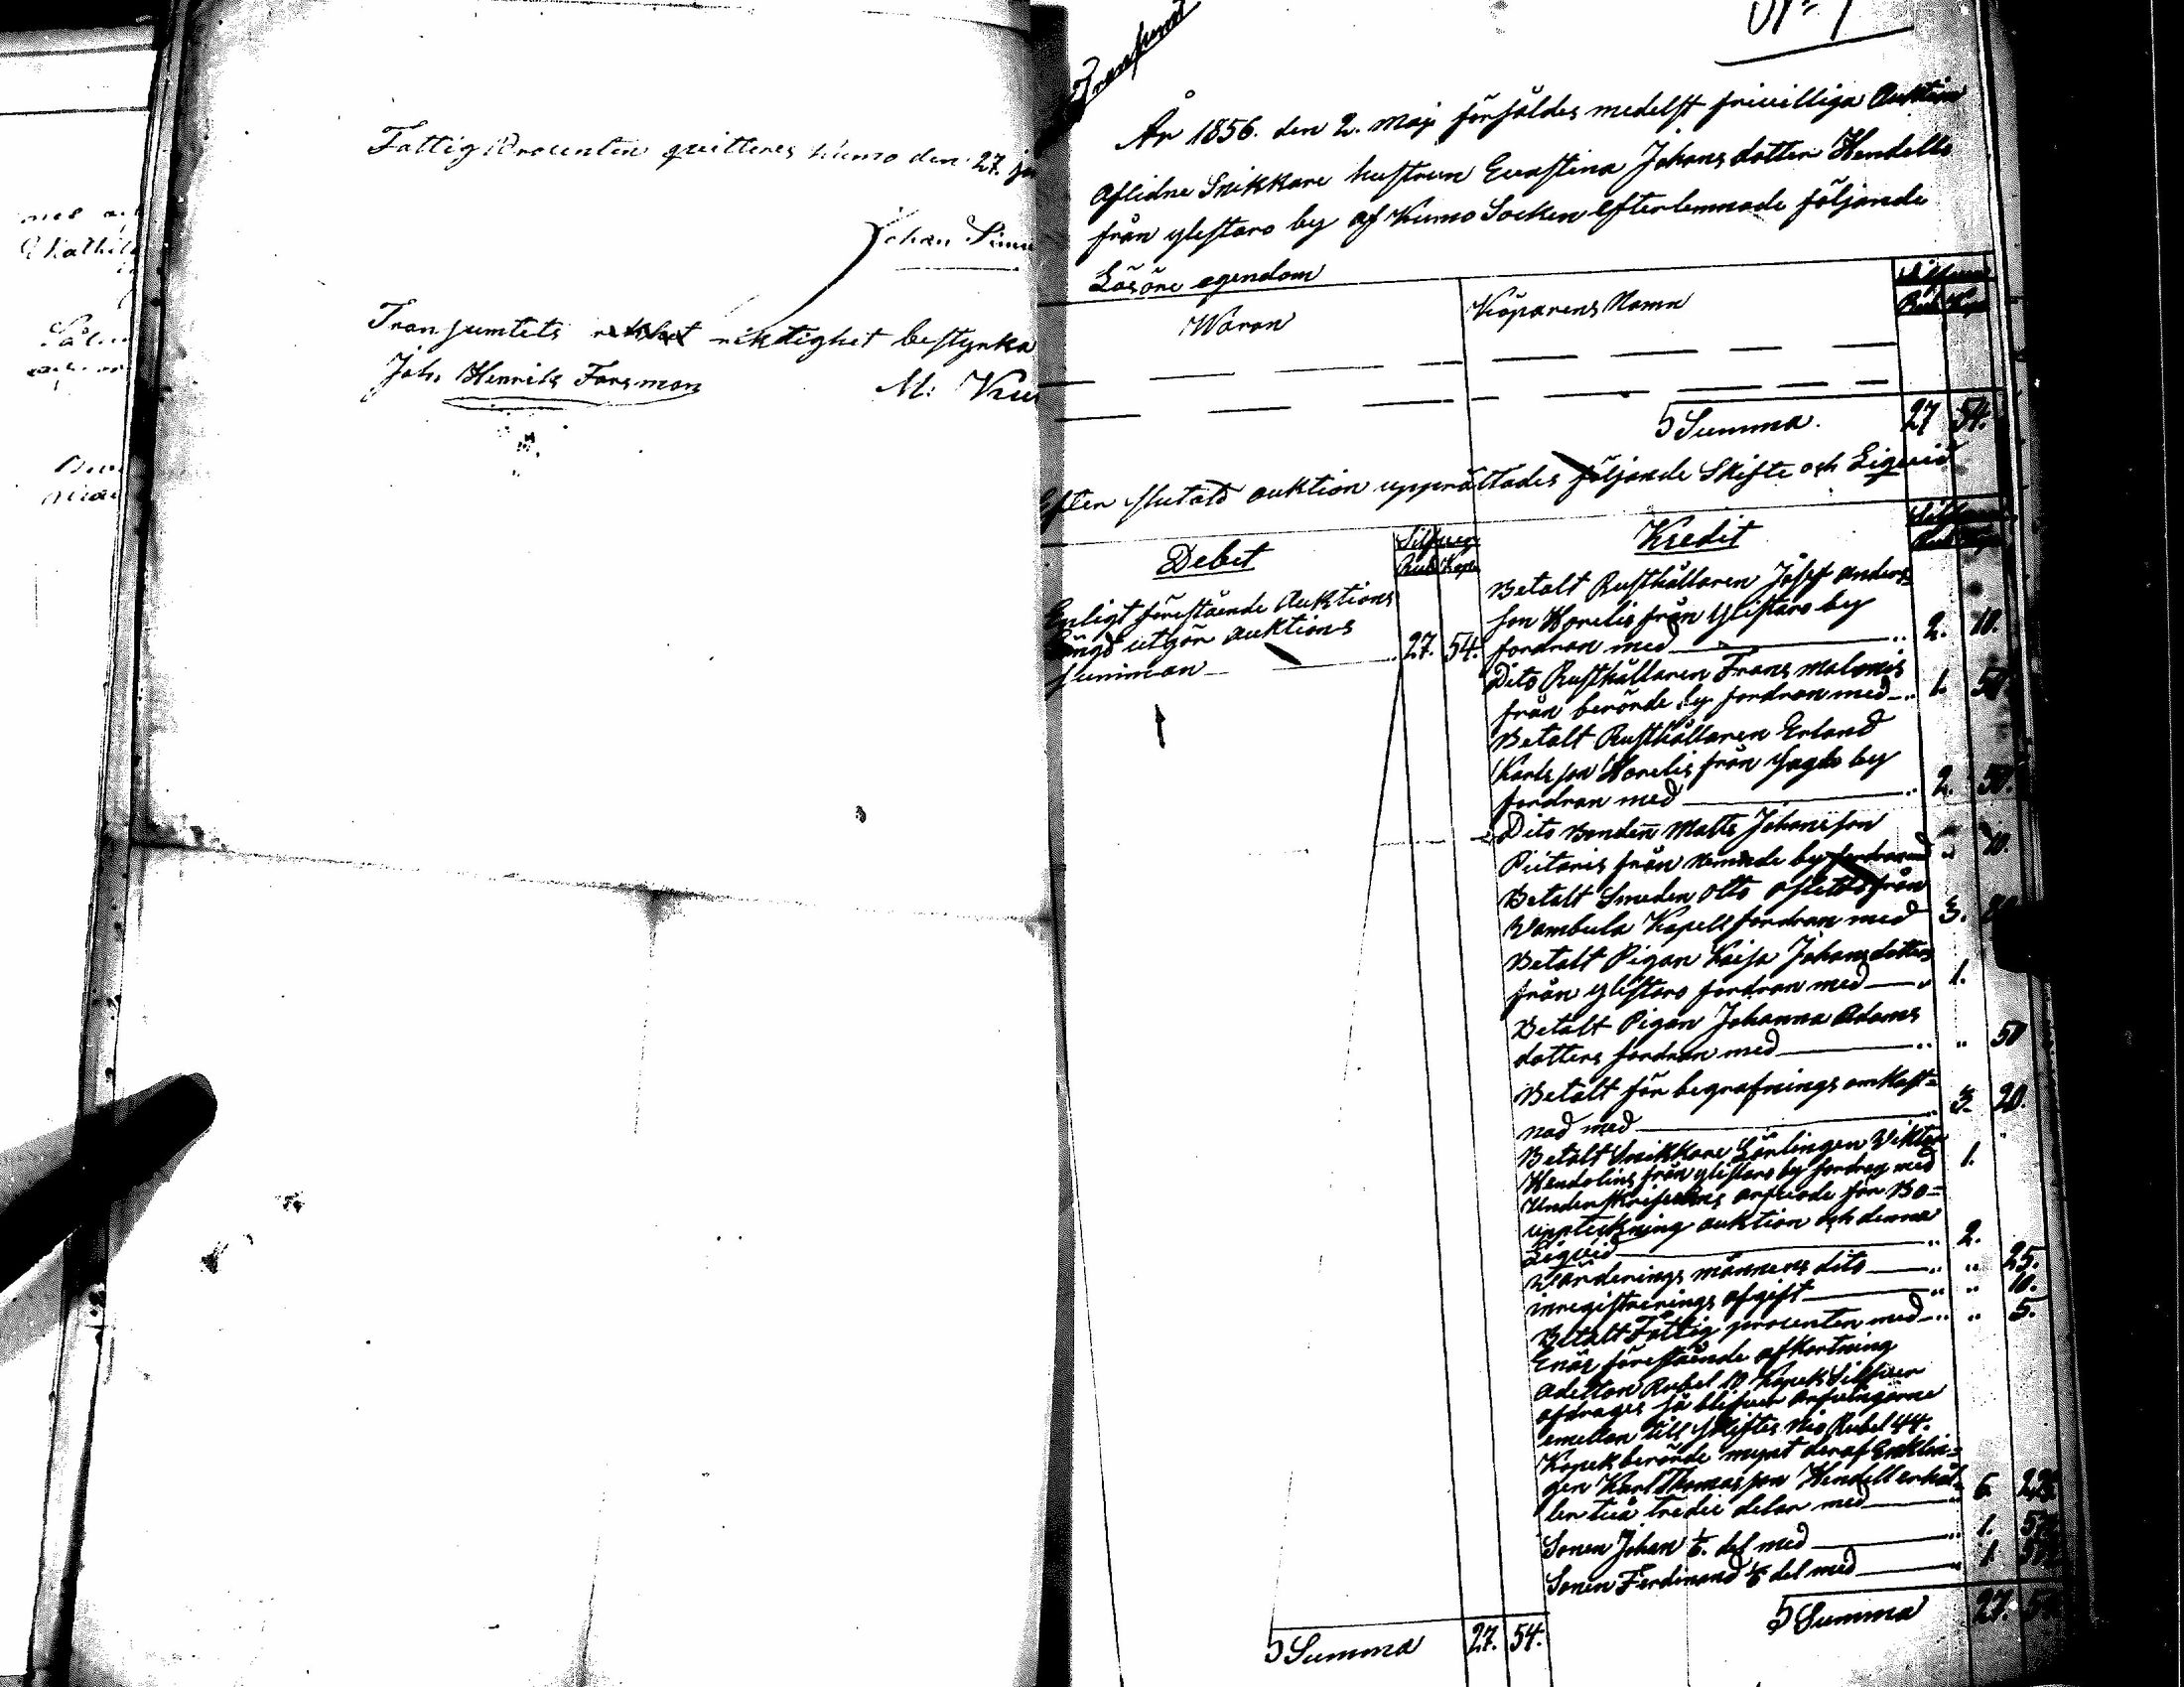 Fattig Procenten quitteras Kumo den 27.
Johan
Transumtets riktighet bestyrka
Joh. Henriks Forsman M:
Transsumt
År 1856. den 2. Maji försåldes medelst frivilliga Auktion
Aflidne Snikkare hustrun Evastina Johans dotter Hendells
från ylistaro by af Kumo Socken efterlemnade följande
Lösöre egendom
Waran Köparens Namn Silfwer
Rub. Kop.
Summa. 27 54.
Efter slutad auktion upprättades följande Skifte och Liqvid
Debet Silfwer Rub Kop.
Enligt förestående Auktions
längd utgör auktions
summan 27. 54.
Summa 27. 54.
Kredit
Betalt Rusthållaren Josef Anders=
son Horelis från Ylistaro by
fordran med 2. 10.
Dito Rusthållaren Frans
från berörde by fordran med 1. 50.
Betalt Rusthållaren Erland
Karlsson Horelis från by
fordran med 2. 50.
Dito Bonden Matts Johansson
från nemnde by fordran med " 10.
Betalt Smeden Otto från
Kapell fordran med 3.
Betalt Pigan Kaisa Johansdotters
från ylistaro fordran med 1.
Betalt Pigan Johanna Adams
dotters fordran med " 50
Betalt för begrafnings omkost=
nad med 3. 20.
Betalt Snikkare Lärlingen Viktor
från ylistaro by fordran med 1.
Underskrifvarens arfvode för Bo=
uppteckning auktion och denna
Liqvid 2.
Wärderings männens dito " 25.
inregistrerings afgift " 10.
Betalt Fattig procenten med " 5.
Enär förestående afkortning
aderton Rubel 10 Kopek Silfwer
afdrages så blifwer arfwingarne
emellan till skiftes nio Rubel 44.
Kopek berörde mynt deraf Enklin=
gen Karl Thomasson Hendell erhål=
ler två tredie delar med 6.
Sonen Johan 1/6. del med 1.
Sonen Ferdinand 1/6 del med 1.
Summa 27. 54.